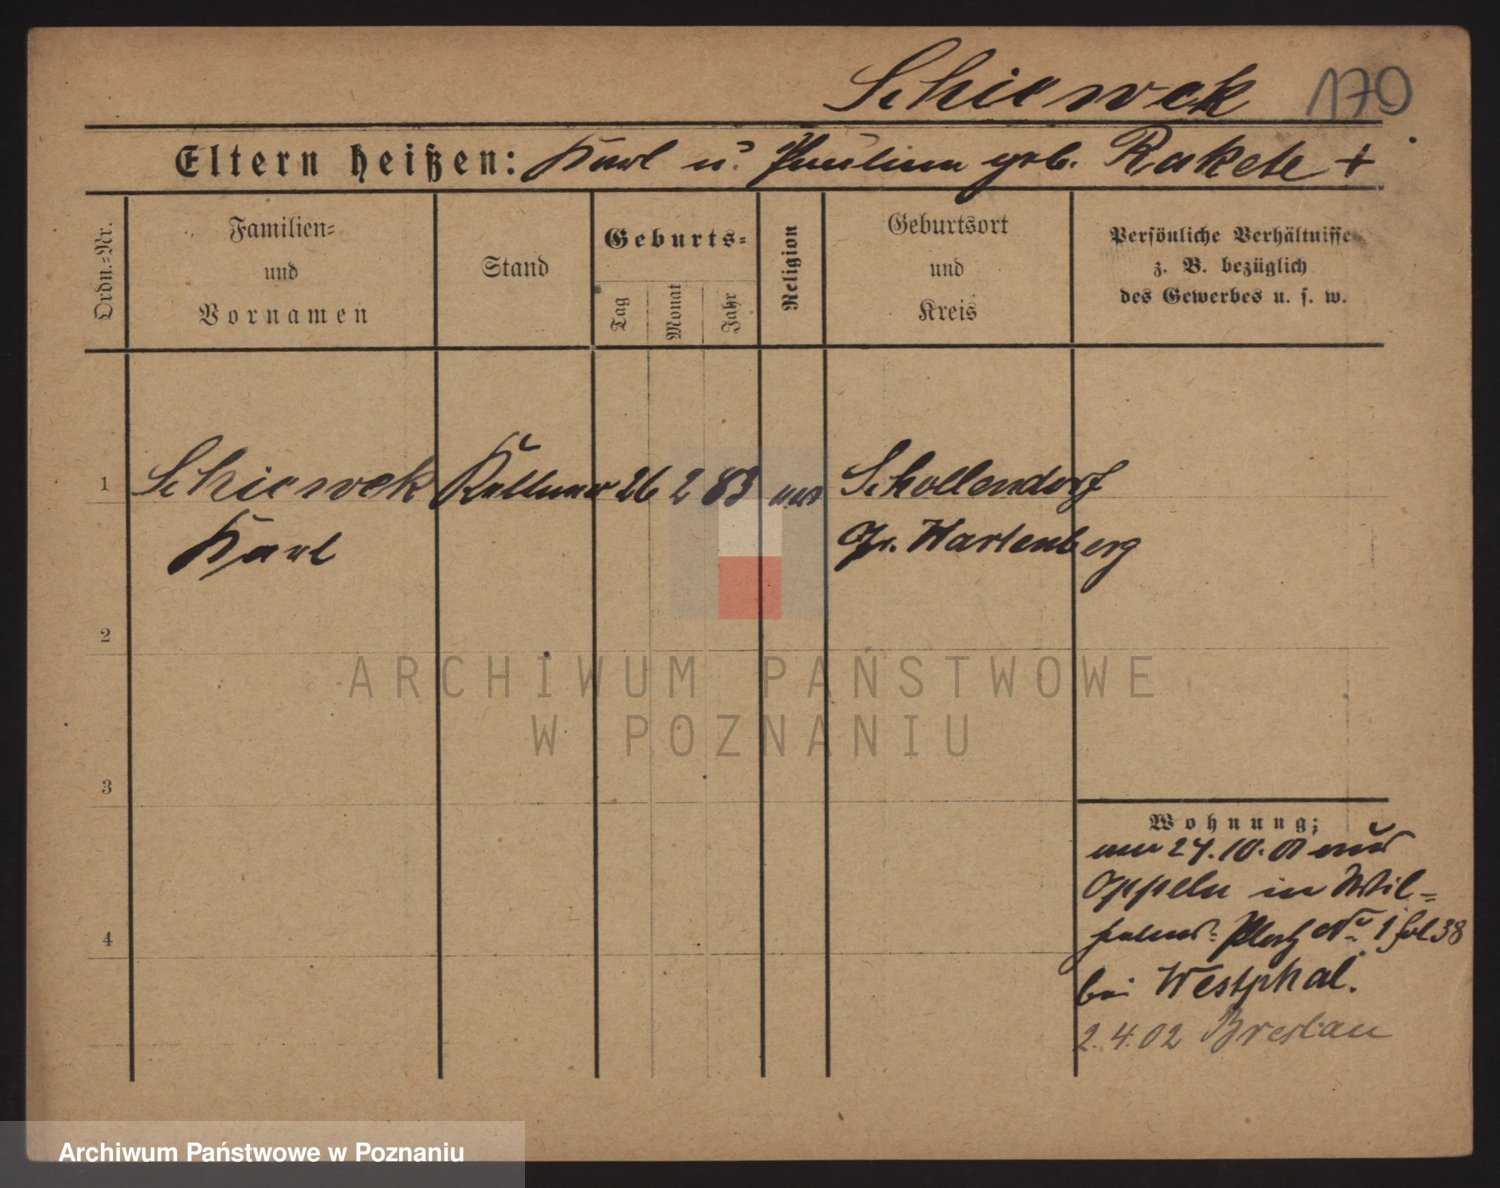 Schiewek 170
Eltern heißen: Karl u. Pauline geb. Rakete +
Ordn.-Nr.
Familien-
und
Vornamen
Stand
Geburts-
Tag
Monat
Jahr
Religion
Geburtsort
und
Kreis
Persönliche Verhältnisse
z. B. bezüglich
des Gewerbes u. s. w.
1 Schiewek Kellner 26 2 83 Schollendorf
Karl Gr. Wartenberg
2
3
4
Wohnung:
24.10.01 aus
Oppeln in Wil-
helms- Platz No 1
bei Westphal.
2.4.02 Breslau
ARCHIWUM PAŃSTWOWE
W POZNANIU
Archiwum Państwowe w Poznaniu